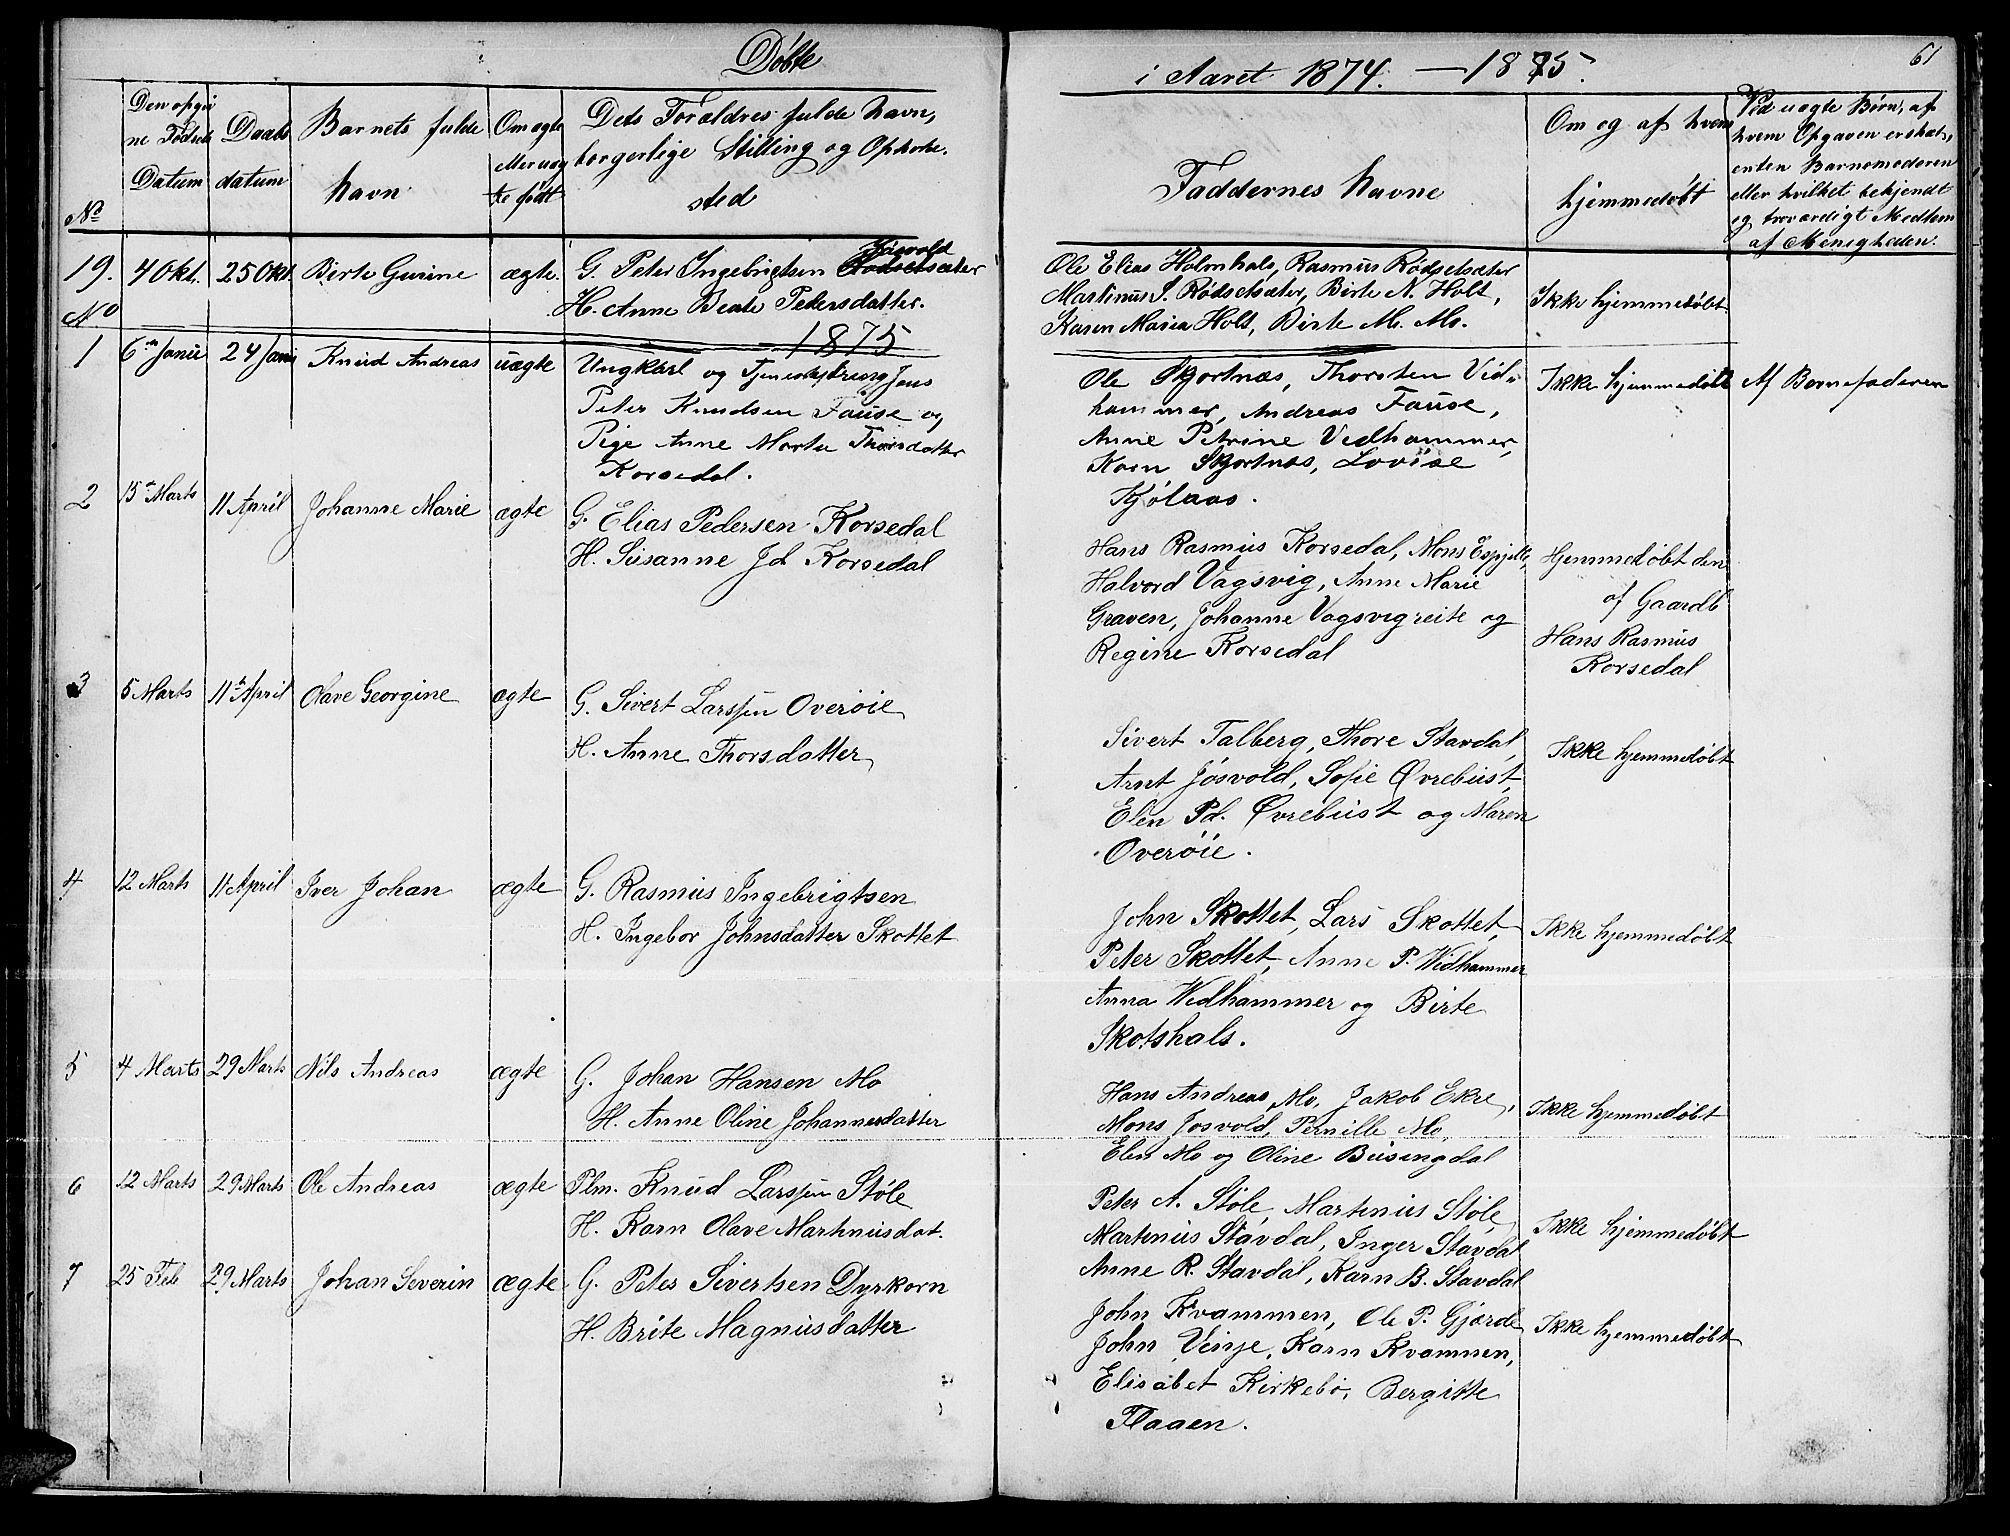 Døbte
i Aaret 1874. — 1875.
61
No
Den opgiv
ne Fødsels
Datum
Daabs
datum
Barnets fulde
Navn
Om ægte
eller uæg
te født
Dets Forældres fulde Navn,
borgerlige Stilling og Opholds
sted
Faddernes Navne
Om og af hvem
hjemmedøbt
Ved uægte Børn, af
hvem Opgaven er skeet,
enten Barnemoderen
eller hvilket bekjendt
og troværdigt Medlem
af Menigheden.
19. 4 Okt. 25 Okt. Birte Gurine ægte. G. Peter Ingebrigtsen Rødsetsæter
Jøsvold
H. Anne Beate Pedersdatter.
Ole Elias Holmhals, Rasmus Rødsetsæter
Martinus S. Rødsetsæter, Birte N. Holt,
Karen Maria Holt, Birte M. Mo.
Ikke hjemmedøbt
No
1875
1 6te Janu 24 Janu Knud Andreas uægte Ungkarl og Tjenestedreng Jens
Peter Knudsen Fause og
Pige Anne Marta Thorsdatter
Korsedal.
Ole Skjortnæs, Thorsten Vid-
hammer, Andreas Fause,
Anne Petrine Vedhammer,
Karn Skjortnæs, Lovise
Kjølaas.
Ikke hjemmedøbt
Af Barnefaderen
2 15de Marts 11 April Johanne Marie ægte G. Elias Pedersen Korsedal
H. Susanne Jd Korsedal
Hans Rasmus Korsedal, Mons
Halvord Vagsvig, Anne Marie
Graven, Johanne Vagsvigreite og
Regine Korsedal
Hjemmedøbt den
af Gaardb
Hans Rasmus
Korsedal
3 5 Marts 11te April Olave Georgine ægte G. Sivert Larssen Overøie
H. Anne Thorsdatter
Sivert Talberg, Thore Stavdal
Arnt Jøsvold, Sofie Øvrebust,
Elen Pd. Øvrebust og Maren
Overøie.
Ikke hjemmedøbt
4 12 Marts 11 April Iver Johan ægte G. Rasmus Ingebrigtsen
H. Ingebor Johnsdatter Skottet
John Skottet, Lars Skottet,
Peter Skottet, Anne P. Widhammer
Anna Wedhammer og Birte
Skotshals.
Ikke hjemmedøbt
5 4 Marts 29 Marts Nils Andreas ægte G. Johan Hansen Mo
H. Anne Oline Johannesdatter
Hans Andreas Mo, Jakob Ekre,
Mons Josvold, Pernille Mo,
Elen Mo og Oline Busingdal
Ikke hjemmedøbt
6 12 Marts 29 Marts Ole Andreas ægte Plm. Knud Larssen Støle
H. Karn Olave Martinusdat.
Peter A. Støle, Martinus Støle,
Martinus Stavdal, Inger Stavdal
Anne R. Stavdal, Karn B. Stavdal
Ikke hjemmedøbt
7 25 Feb 29 Marts Johan Severin ægte G. Peter Sivertsen Dyrkorn
H. Brite Magnusdatter
John Kvammen, Ole P. Gjærde
John Vinje, Karn Kvammen,
Elisabet Kirkebø, Bergitte
Flaaen.
Ikke hjemmedøbt